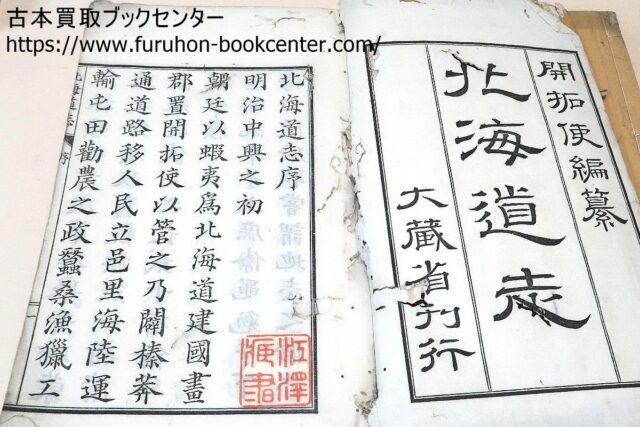 古本買取ブックセンター
https://www.furuhon-bookcenter.com/
開拓使編纂
北海道志
大藏省刊行
北海道志序
明治中興之初
朝廷以蝦夷爲北海道建國畫
郡置開拓使以管之乃闢榛莽
通道路移人民立邑里海陸運
輸屯田勸農之政蠶桑漁獵工
北海道志
序